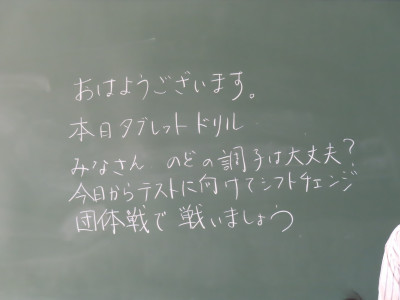 おはようございます。
本日タブレットドリル
みなさん のどの調子は大丈夫?
今日からテストに向けてシフトチェンジ
団体戦で戦いましょう